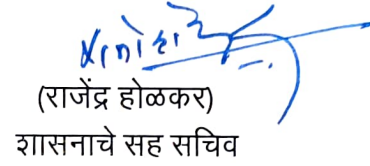 (राजेंद्र होळकर)
शासनाचे सह सचिव